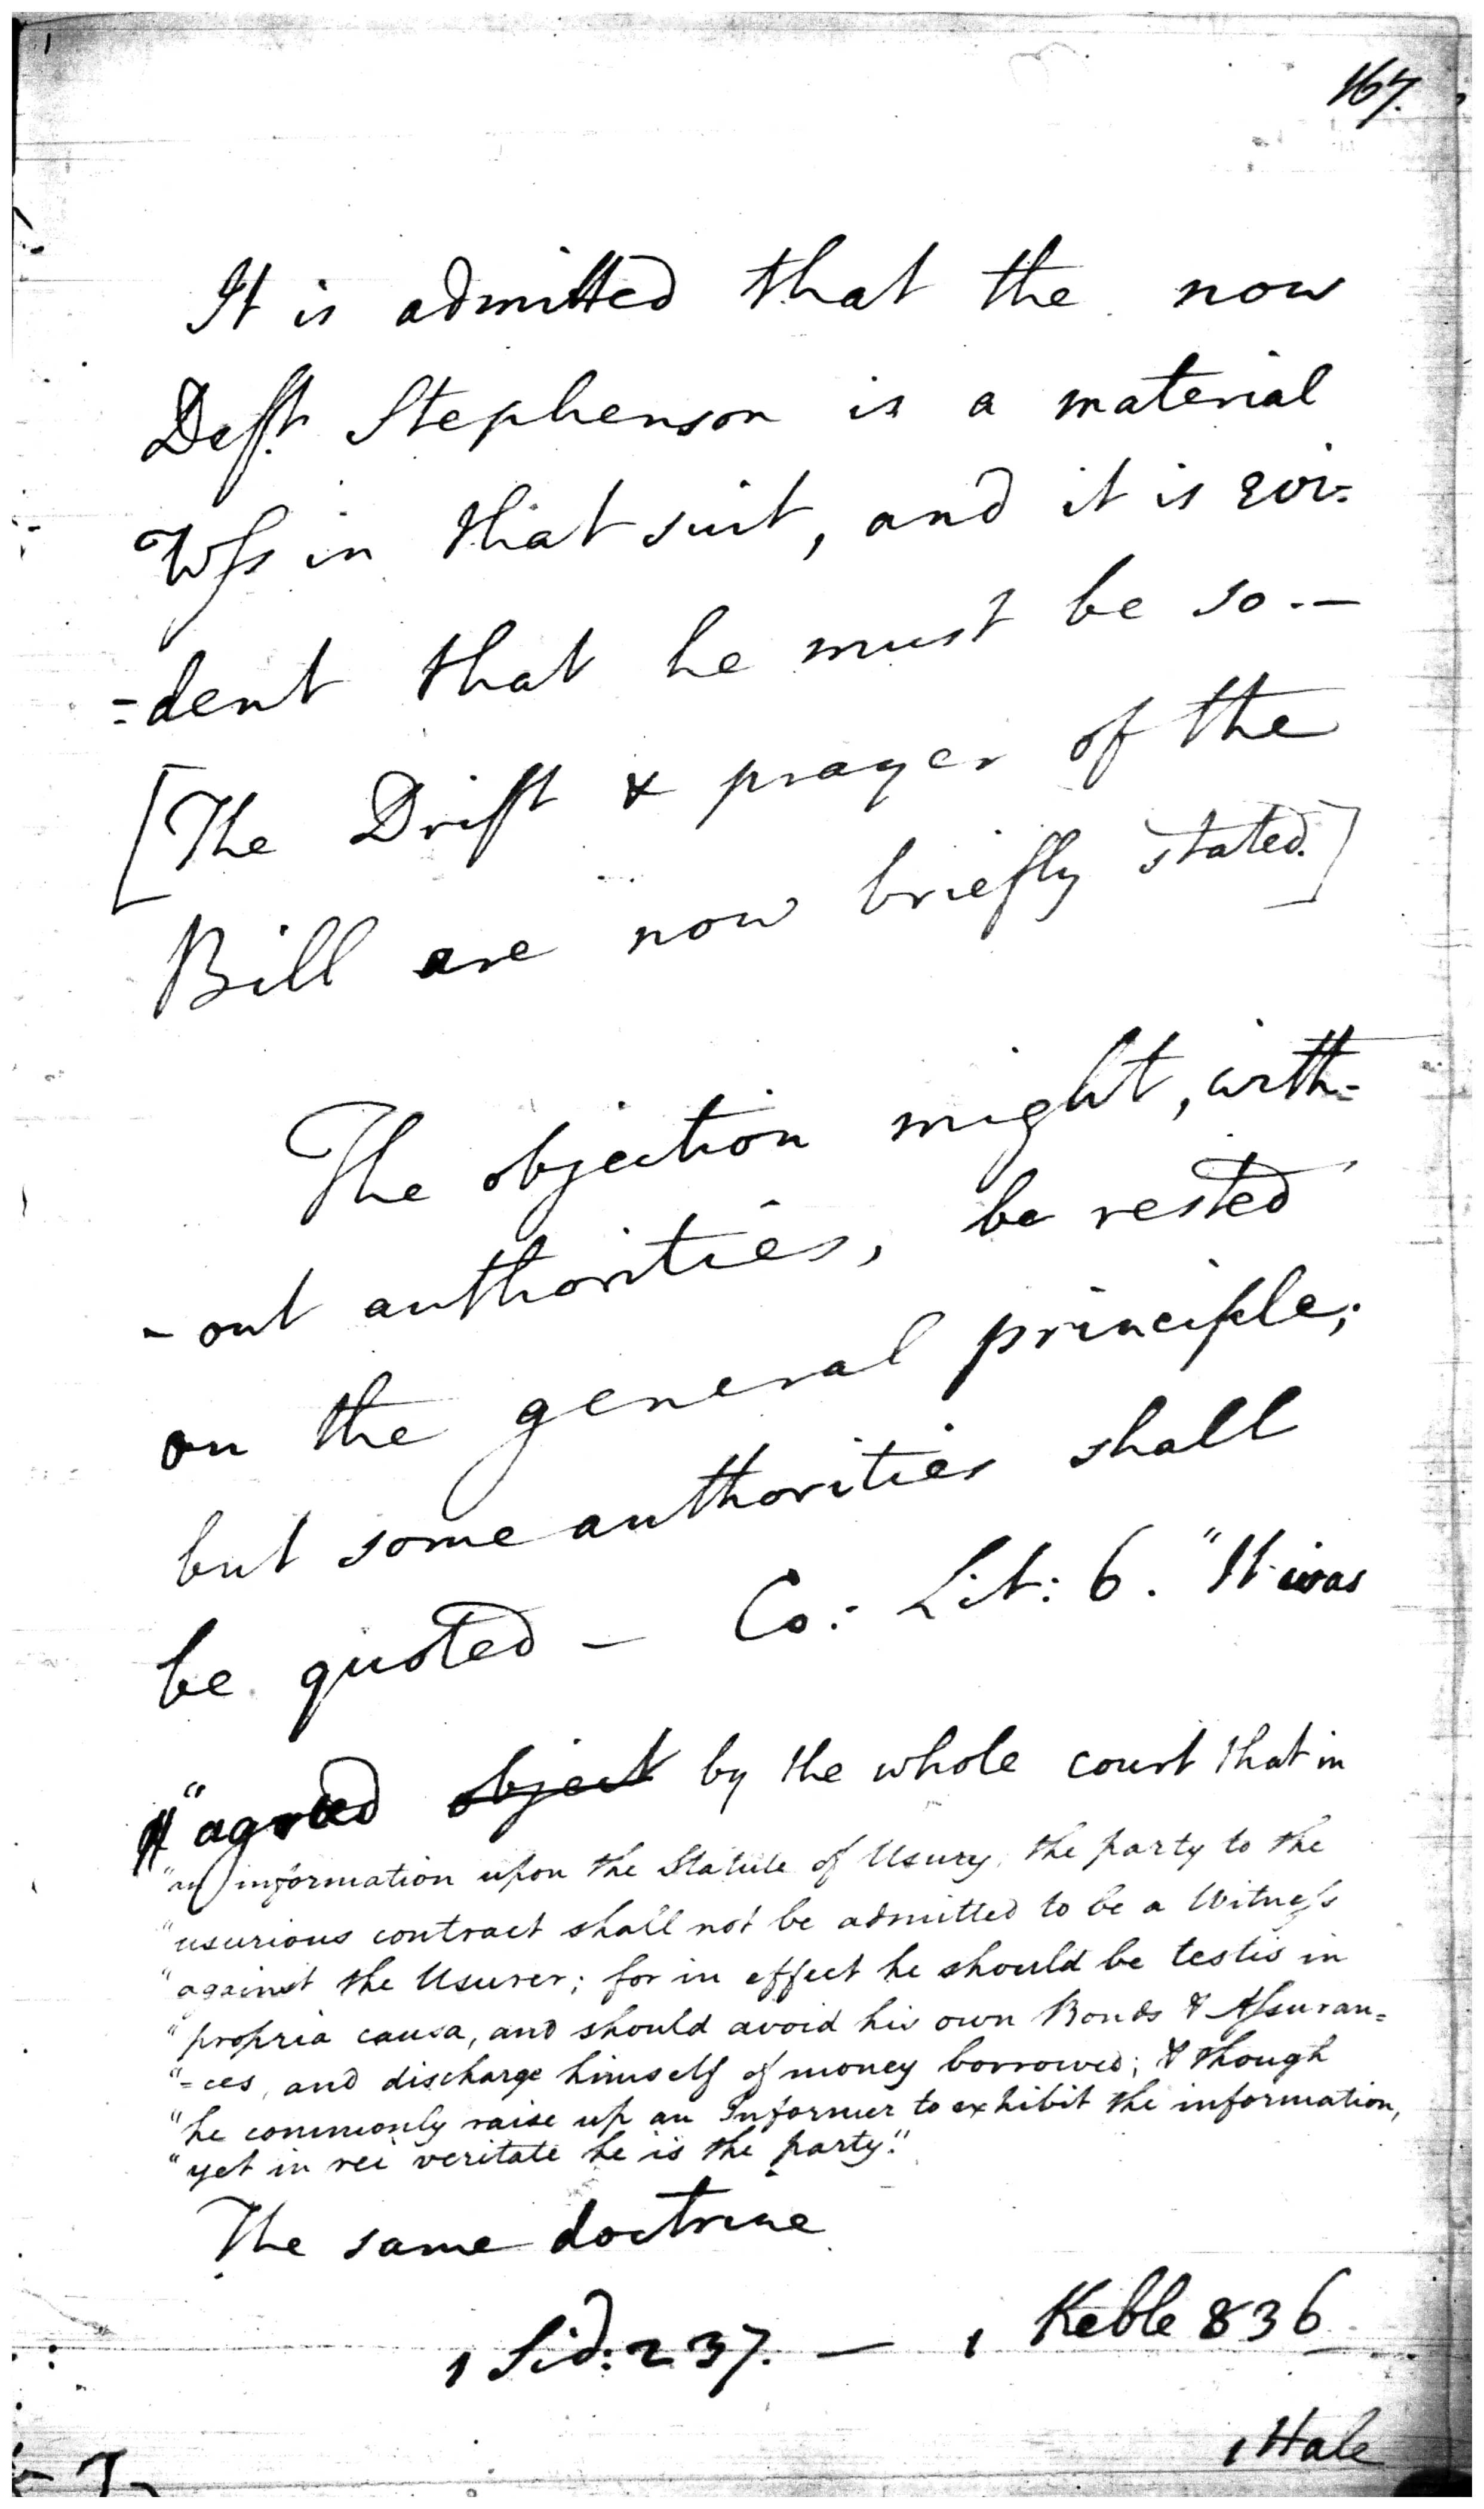 167.
It is admitted that the now
Deft. Stephenson is a material
Wss in that suit, and it is evi=
=dent that he must be so.—
[The Drift & prayer of the
Bill are now briefly stated.]
The objection might, with=
-out authorities, be rested
on the general principle;
but some authorities shall
be quoted — Co: Lit: 6. "It was
"agreed object by the whole court that in
"an information upon the Statute of Usury, the party to the
"usurious contract shall not be admitted to be a Witness
"against the Usurer; for in effect he should be testis in
"propria causa, and should avoid his own Bonds & Assuran=
"=ces, and discharge himself of money borrowed; & though
"he commonly raise up an Informer to exhibit the information,
"yet in rei veritate he is the party."
The same doctrine
1 Sid: 237. — 1 Keble 836
1 Hale